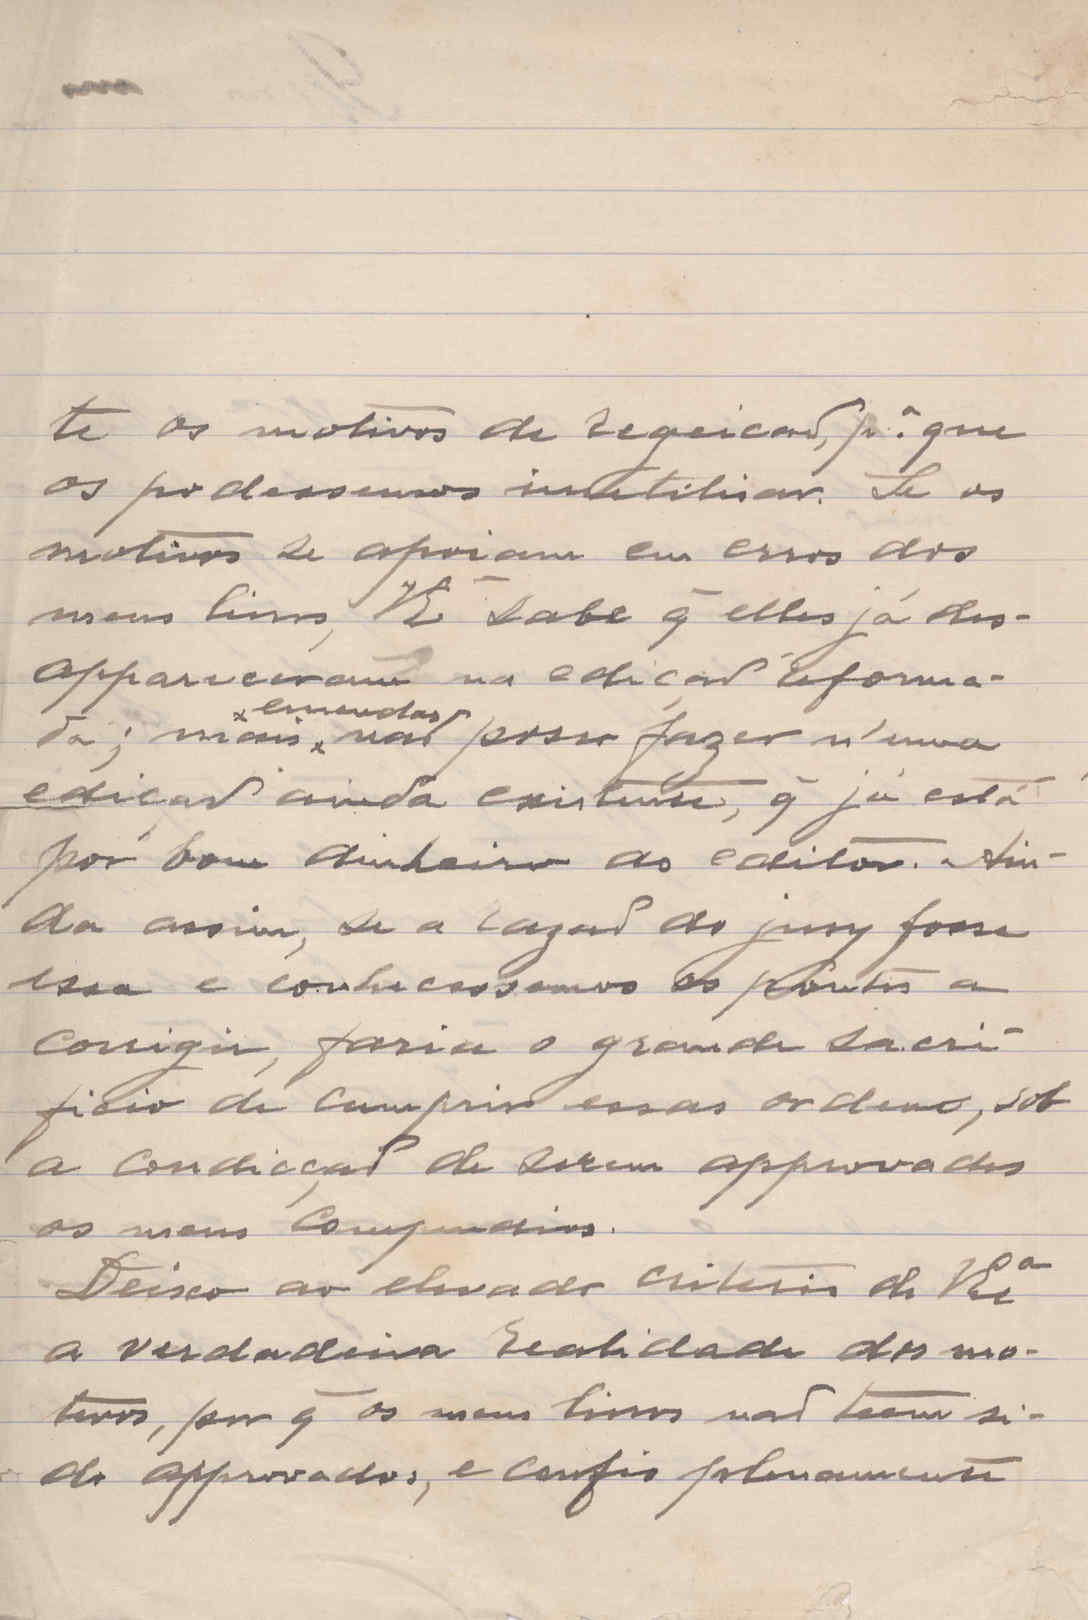 te os motivos de regeicaõ, p.ª que
os podessemos inutilisar. Se os
motivos se apoiam em erros dos
meus livros, VEª sabe q̃ elles já des-
appareceram na ediçaõ reforma-
da; mais emendas naõ posso fazer n'uma
ediçaõ ainda existente, q̃ já está
por bom dinheiro do editor. Ain-
da assim, se a razaõ do jury fosse
essa e conhecessemos os pontos a
corrigir, faria o grande sacri-
ficio de cumprir essas ordens, sob
a condicçaõ de serem approvados
os meus compendios.
Deixo ao elevado criterio de VExª
a verdadeira realidade dos mo-
tivos, por q̃ os meus livros naõ teem si-
do approvados, e confio plenamente